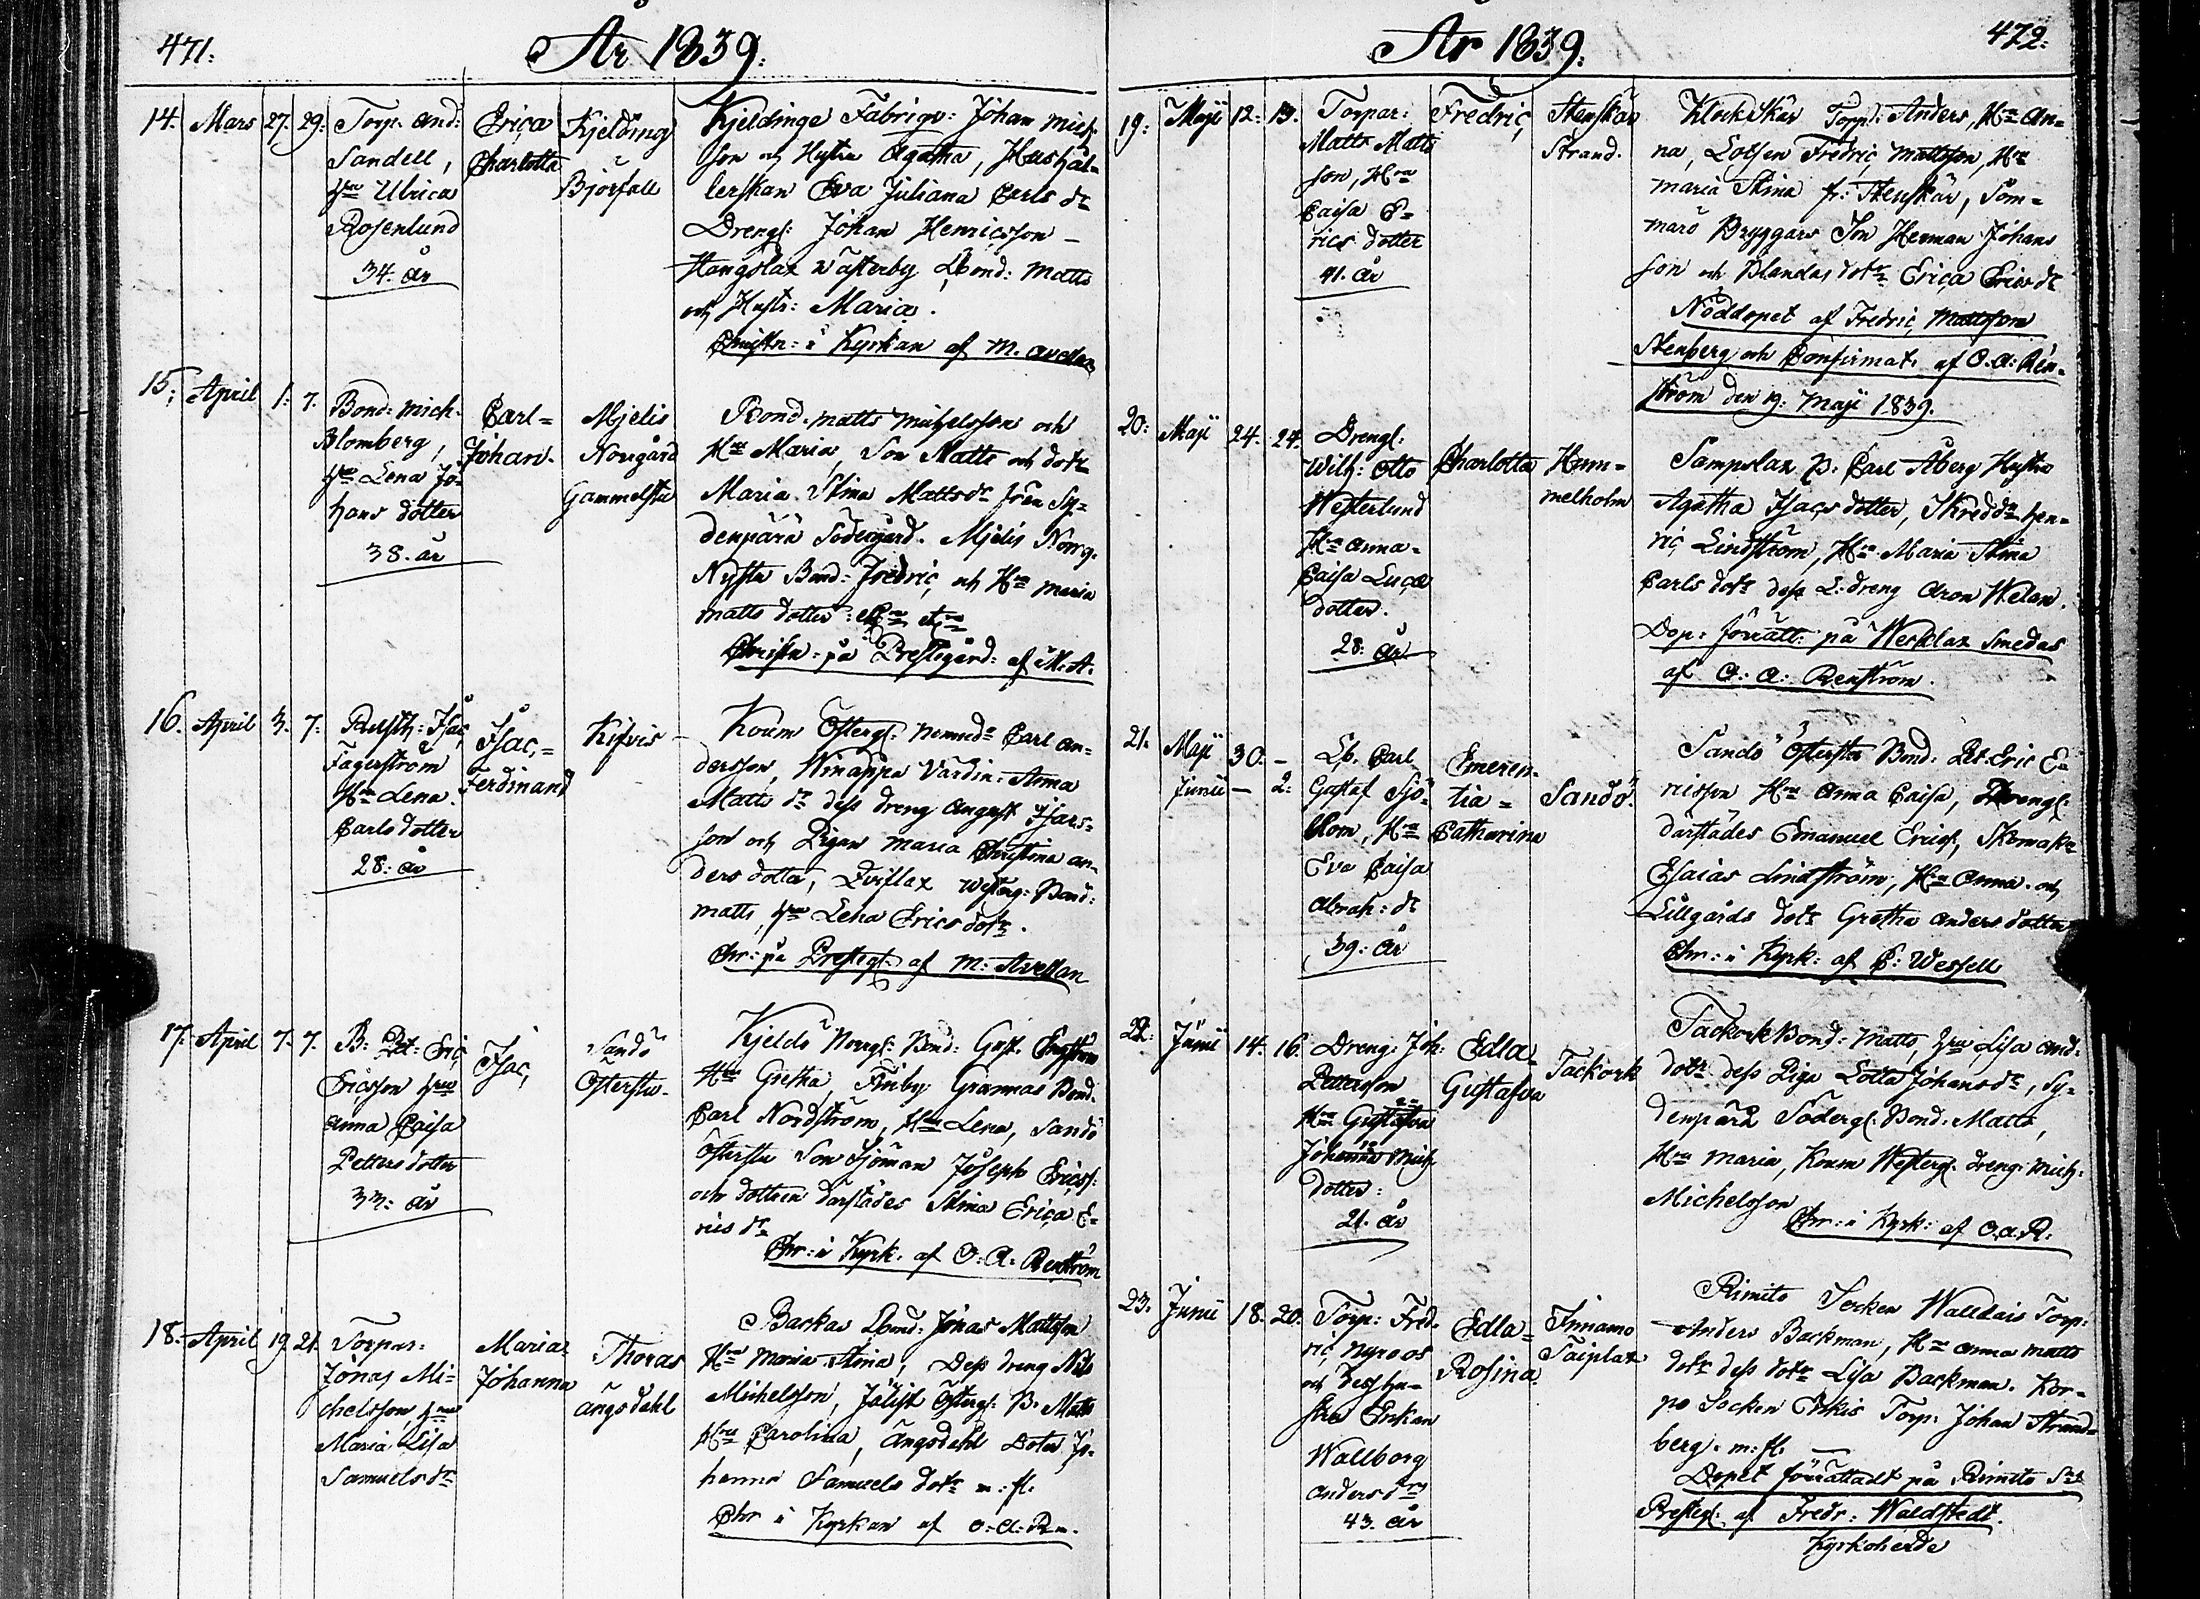 471.
År 1839.
14. Mars 27. 29.
Torp. And:
Sandell,
Hru Ulrica
Rosenlund
34. år
Erica
Charlotta
Kjelding
Björfall
Kjeldinge Fabrigv: Johan Mich
son och Hustru Agatha, Hushål-
lerskan Eva Juliana Carls dr
Drengl: Johan Henricsson -
Hangslax Västerby Lbond: Matts
och Hustr: Maria.
Christn: i Kyrkan af M. Avellan
15. April 1. 7.
Bond: Mich.
Blomberg,
Hru Lena Jo-
hans dotter
38. år
Carl=
Johan.
Mjelis
Norrgård
Gammelstu
Bond. Matts Michelsson och
Hru Maria, Son Matts och dotr
Maria Stina Matts dr från Sy-
denpärä Södergård. Mjelis Norrg.
Nystu Bond: Fredric, och Hru Maria
Matts dotter:
Christn: på Prestegård: af M. A.
16. April 3. 7.
Rusth: Isac
Fagerström
Hru Lena
Carls dotter
28. år
Isac,=
Ferdinand
Kifvis
Koum Östergl. Nemndn Carl An-
dersson, Winappa Värdin: Anna
Matts dr dess dreng August Isacs-
son och Pigan Maria Christina An-
ders dotter, Qviflax Westerg: Bond:
Matts, Hru Lena Erics dotr.
Chr: på Prestegl: af M: Avellan
17. April 7. 7.
B: Pet: Eric
Ericsson Hru
Anna Caisa
Petters dotter
33. år
Isac,
Sandö
Österstu.
Kjeldö Norrgl: Bond: Gust. Engström
Hru Gretha, Finby Grannas Bond.
Carl Nordström, Hru Lena, Sandö
Österstu Son Sjöman Joseph Ericss:
och dottren darstädes Stina Erica E-
rics dr
Chr: i Kyrk: af O: A. Renström
18. April 19. 21.
Torpar:
Jonas Mi-
chelsson Hru
Maria Lisa
Samuels dr
Maria=
Johanna
Thoras
ängsdahl
Backas Lbond: Jonas Mattsson
Hru Maria Stina, Dess dreng Nils
Michelsson, Jälist Östergl: B: Matts
Hru Carolina, Ängsdahl Doter Jo-
hanna Samuels dotr m: fl.
Chr i Kyrkan af O: A: Rn.
472.
År 1839.
19. Maji 12. 19.
Torpar:
Matts Matts
son, Hru
Caisa E-
rics dotter
41. år
Fredric,
Stenskär
Strand.
Klockskär Torp: Anders, Hru An-
na, Lotsen Fredric Mattsson, Hru
Maria Stina fr: Stenskär, Som-
marö Bryggars Son Herman Johans
son och Blandas dotr Erica Erics dr
Nöddopet af Fredric Mattsson
Stenberg och Confirmat: af O. A: Ren-
ström den 19. Maji 1839.
20. Maji 24. 24.
Drengl:
Wilh: Otto
Westerlund
Hru Anna-
Caisa Lucæ
dotter.
28. år
Charlotta
Hum-
melholm
Sampslax p. Carl Åberg Hustru
Agatha Isacs dotter, Skreddn Hen-
ric Lindström, Hru Maria Stina
Carls dotr dess L: dreng Aron Welan.
Dop: förrätt: på Werklax Smedas
af O: A: Renström.
21. Maji 30. -
Junii - 2.
Lb. Carl
Gustaf Sjö-
blom, Hru
Eva Caisa
Abrah: dr
39. år
Emeren-
tia =
Catharina
Sandö.
Sandö Österstu Bond: Pet: Eric E-
ricsson Hru Anna Caisa, Drengl:
därstädes Emanuel Erics, Skomake
Esaias Lindström, Hru Anna och
Lillgårds dotr Gretha Anders dotter
Chr: i Kyrk: af C: Wessell
22. Junii 14. 16.
Dreng: Joh:
Pettersson
Hru Gustafva
Johanna Mich
dotter:
21. år
Edla
Gustafva
Tackork
Tackork Bond: Matts, Hru Lisa And:
dotr dess Piga Lotta Johansdr, Sy-
denpärä Södergl: Bond: Matts,
Hru Maria, Koum Westergl. dreng: Mich:
Michelsson
Chr: i Kyrk: af O. A. R.
23. Junii 18. 20.
Torp: Fred.
ric Nyroos
och dess hu-
stru Enkan
Wallborg
Anders dr
43. år
Edla=
Rosina
Finnamo
Taiplax
Rimito Socken Walldais Torp:
Anders Backman, Hru Anna Matts
dotr dess dotr Lisa Backman. Kor-
po Socken Torp: Johan Strand-
berg. m: fl. -
Dopet förrättadt på Rimito Sns
Prestegl: af Fredr: Waldstedt.
Kyrkoherde